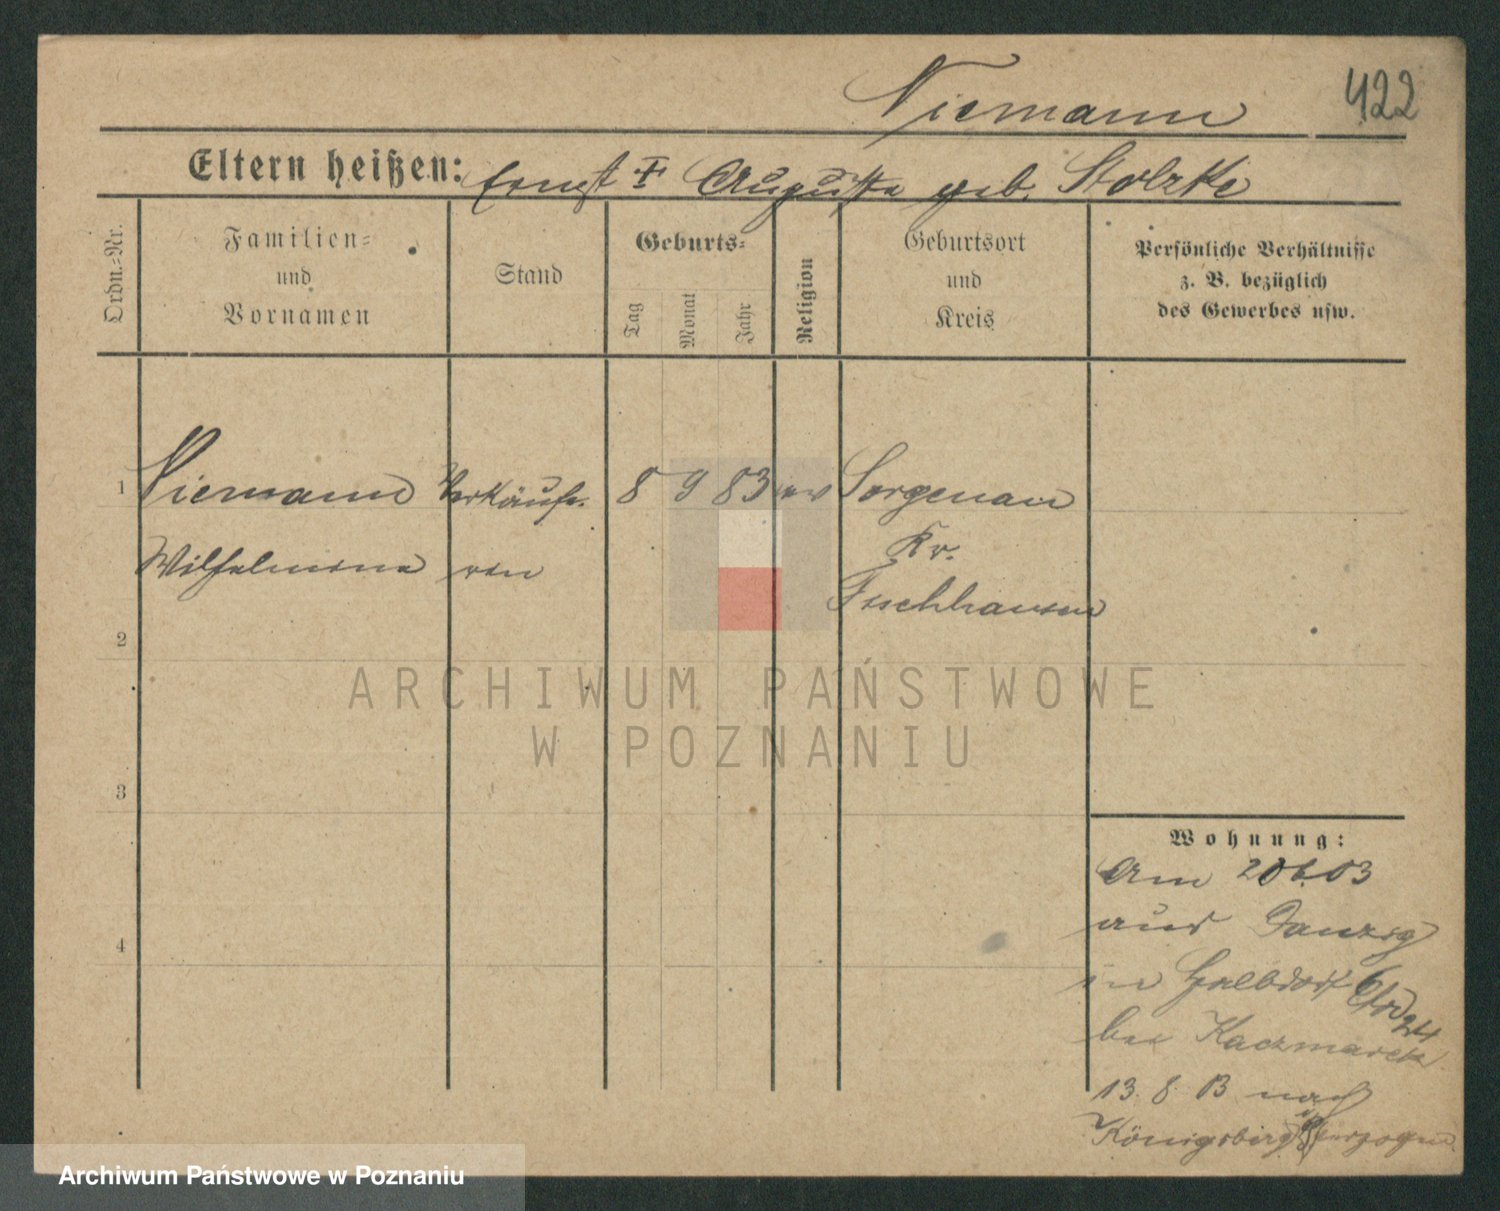 Niemann
422
Eltern heißen: Ernst † Auguste geb. Stolzke
Ordn.-Nr.
Familien-
und
Vornamen
Stand
Geburts-
Tag
Monat
Jahr
Religion
Geburtsort
und
Kreis
Persönliche Verhältnisse
z. B. bezüglich
des Gewerbes usw.
1 Niemann Verkäufe- 8 9 83 ev Sorgenau
Kr.
Wilhelmine rin
Fischhausen
2
ARCHIWUM PAŃSTWOWE
W POZNANIU
3
Wohnung:
Am 20 6 03
aus Danzig
4
in Halbdorfstr 24
bei Kaczmarek
13. 8. 03 nach
Königsberg verzogen
Archiwum Państwowe w Poznaniu